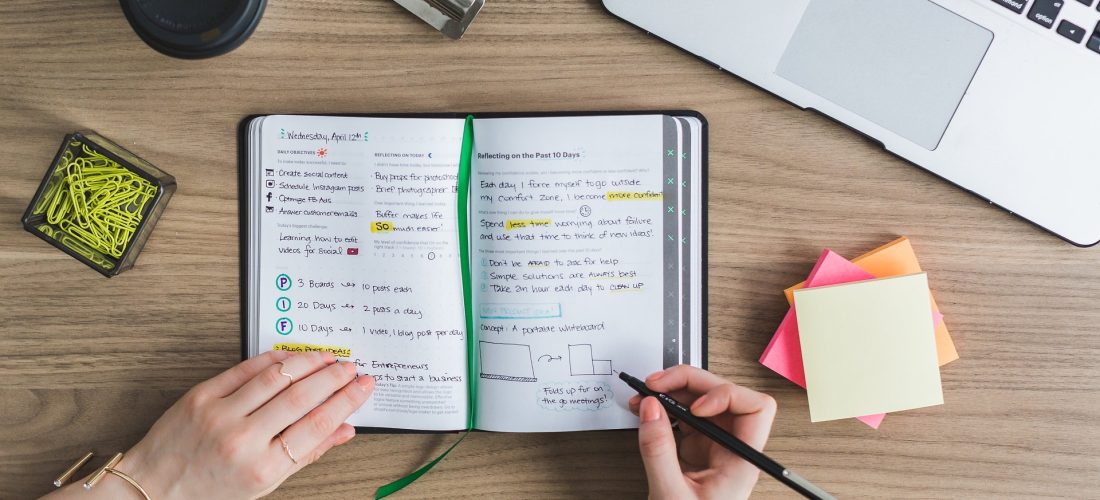 Wednesday, April 12th
DAILY OBJECTIVES
To make today successful, I need to:
Create social content
Schedule Instagram posts
Optimize FB Ads
Answer customer emails
Today's biggest challenge:
Learning how to edit
videos for social
P 3 Boards 10 posts each
I 20 Days 2 posts a day
F 10 Days 1 video, 1 blog post per day
BLOG POST IDEAS
for Entrepreneurs
ps to start a business
REFLECTING ON TODAY
Buy props for photoshoot
Brief photographer
Buffer makes life
SO much easier!
Reflecting on the Past 10 Days
Each day I force myself to go outside
my comfort zone, I become more confident
Spend less time worrying about failure
and use that time to think of new ideas!
1 Don't be AFRAID to ask for help
2 Simple solutions are ALWAYS best
3 Take an hour each day to CLEAN UP
NEW PRODUCT IDEA!
Concept: A portable whiteboard
Folds up for on
the go meetings!